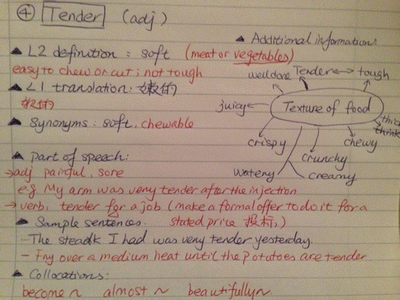 ④ Tender (adj)
▲ Additional information:
▲ L2 definition: soft (meat or vegetables)
easy to chew or cut; not tough
▲ L1 translation: 嫩的
軟的
▲ Synonyms: soft, chewable
welldone
Tender ↔ tough
juicy
Texture of food
crispy
crunchy
chewy
watery
creamy
thick
▲ Part of speech:
→ adj painful, sore
e.g. My arm was very tender after the injection
→ verb: tender for a job (make a formal offer to do it for a
stated price 投標)
▲ Sample sentences:
- The steak I had was very tender yesterday.
- Fry over a medium heat until the potatoes are tender
▲ Collocations:
become ~ almost ~ beautifully ~